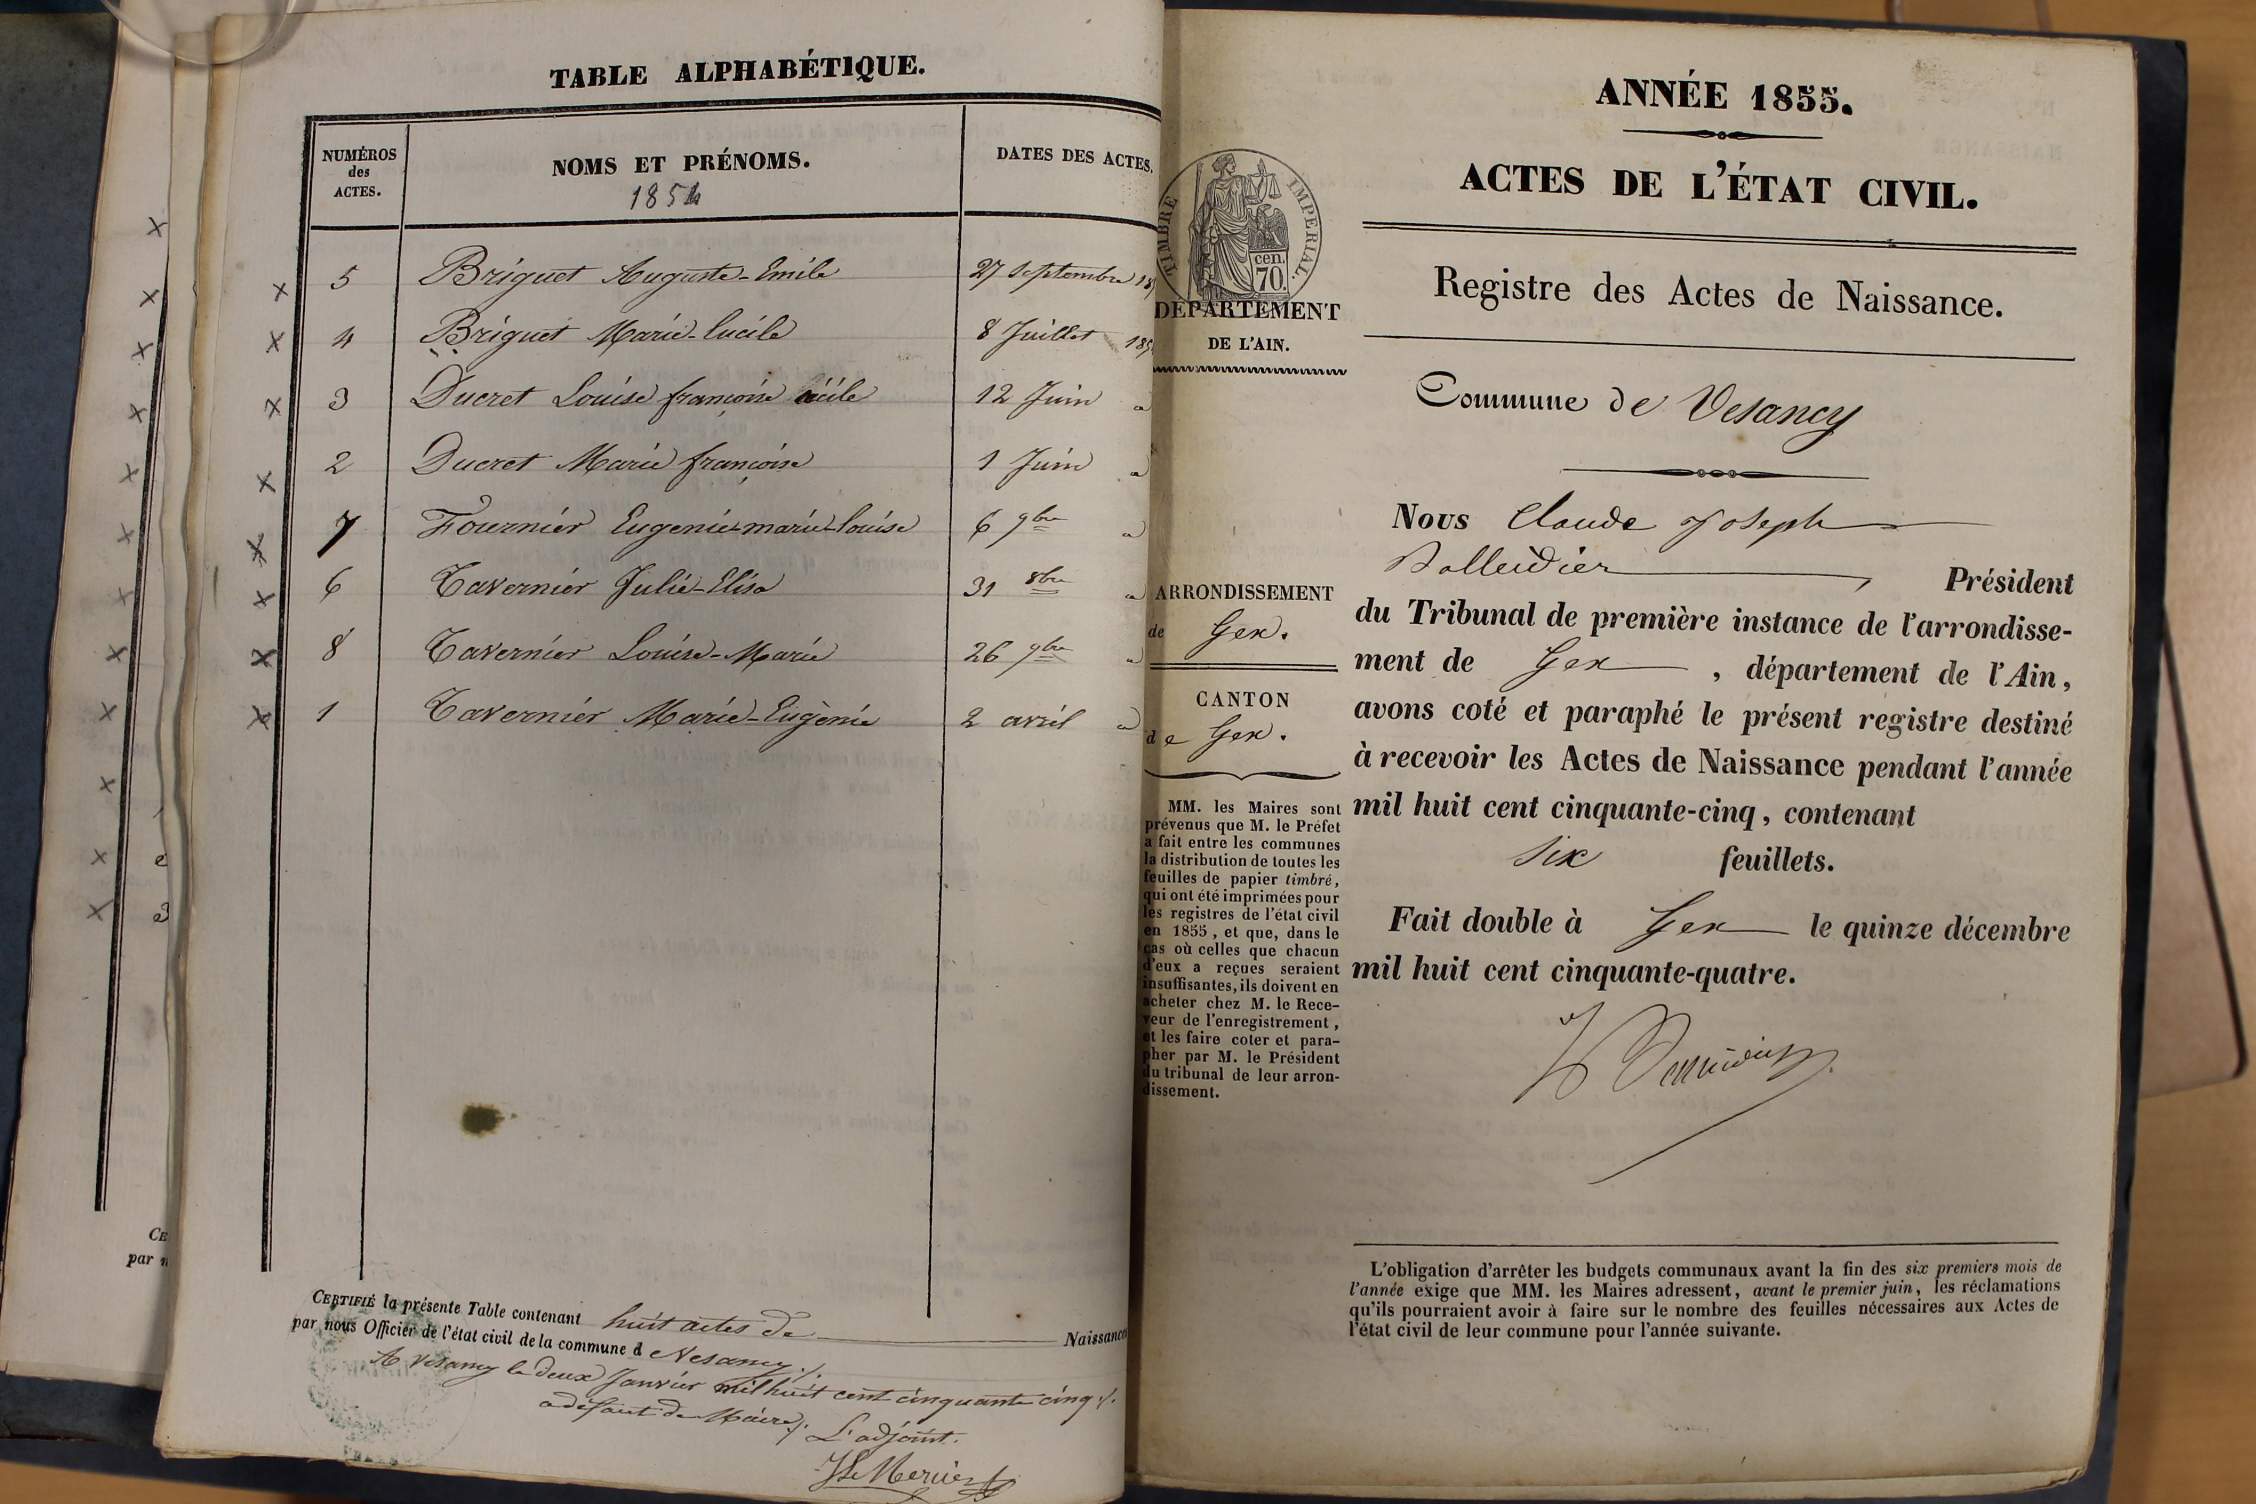 TABLE ALPHABÉTIQUE.
NUMÉROS
des
ACTES.
NOMS ET PRÉNOMS.
1854
DATES DES ACTES.
5 Briguet Auguste-Emile 27 septembre 185
4 Briguet Marie-lucile 8 Juillet 185
3 Ducret Louise françoise 12 Juin
2 Ducret Marie françoise 1 Juin
7 Fournier Eugenie-marie-louise 6 9bre
6 Tavernier Julie-Elisa 31 8bre
8 Tavernier Louise-Marie 26 9bre
1 Tavernier Marie-Eugènie 2 avril
CERTIFIÉ la présente Table contenant huit actes de Naissance
par nous Officier de l'état civil de la commune d Vesancy./.
A vesancy le deux Janvier mil huit cent cinquante cinq ./.
a défaut de Maire,/. L'adjoint.
CE
par n
TIMBRE IMPERIAL.
cen.
70.
DÉPARTEMENT
DE L'AIN.
ARRONDISSEMENT
de Gex.
CANTON
de Gex.
MM. les Maires sont
prévenus que M. le Préfet
a fait entre les communes
la distribution de toutes les
feuilles de papier timbré,
qui ont été imprimées pour
les registres de l'état civil
en 1855, et que, dans le
cas où celles que chacun
d'eux a reçues seraient
insuffisantes, ils doivent en
acheter chez M. le Rece-
veur de l'enregistrement,
et les faire coter et para-
pher par M. le Président
du tribunal de leur arron-
dissement.
ANNÉE 1855.
ACTES DE L'ÉTAT CIVIL.
Registre des Actes de Naissance.
Commune de Vesancy
Nous Claude Joseph
, Président
du Tribunal de première instance de l'arrondisse-
ment de Gex, département de l'Ain,
avons coté et paraphé le présent registre destiné
à recevoir les Actes de Naissance pendant l'année
mil huit cent cinquante-cinq, contenant
six feuillets.
Fait double à Gex le quinze décembre
mil huit cent cinquante-quatre.
L'obligation d'arrêter les budgets communaux avant la fin des six premiers mois de
l'année exige que MM. les Maires adressent, avant le premier juin, les réclamations
qu'ils pourraient avoir à faire sur le nombre des feuilles nécessaires aux Actes de
l'état civil de leur commune pour l'année suivante.